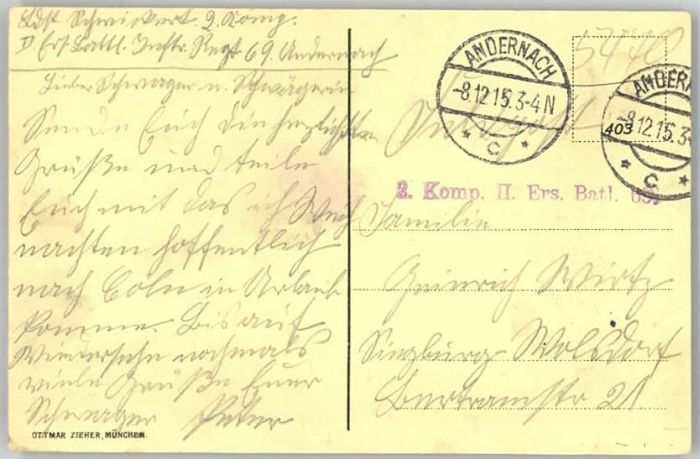 Ldst Schwickert. 2. Komp.
II Ers. Battl. Inftr. Regt 69. Andernach
Lieber Schwager u. Schwägerin
Sende Euch die herzlichsten
Grüße und teile
Euch mit das ich Weih
nachten hoffentlich
nach Coln in Urlaub
komme. Bis auf
Wiedersehn nochmals
viele Grüße Euer
Schwager Peter
OTTMAR ZIEHER, MÜNCHEN.
5440
ANDERNACH
-8.12.15.3-4N
* C *
ANDERN
-8.12.15.3-
* C *
403
2. Komp. II. Ers. Batl. 69,
Familie
Heinrich Wirtz
Siegburg-Wolsdorf
Bertramstr 21